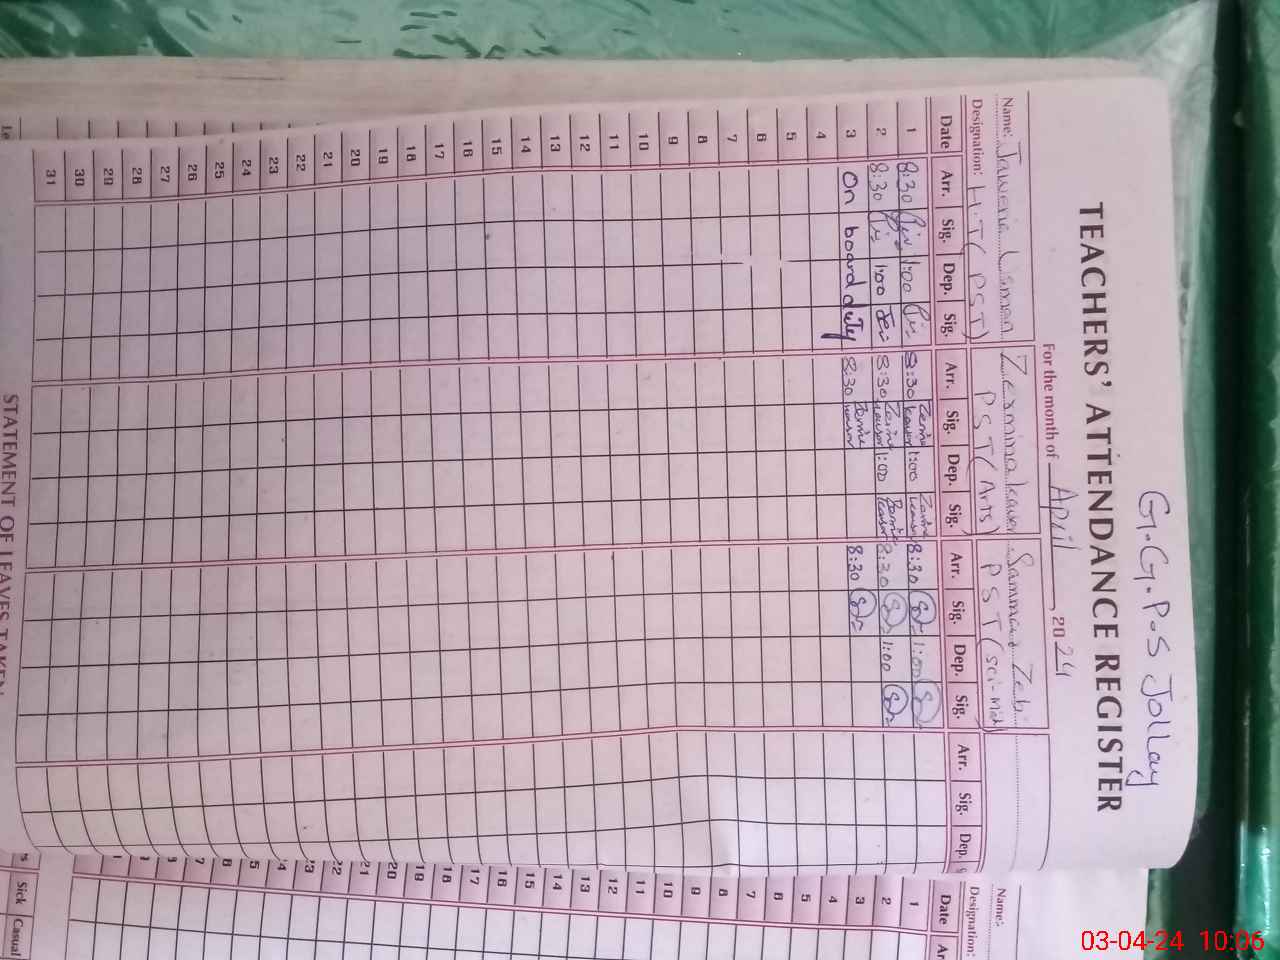 G.G.P.S Jollay
TEACHERS' ATTENDANCE REGISTER
For the month of April, 2024
Name: Javeria Usman Zermina Kawser Sammar Zeb
Designation: H.T( PST) PST(Arts) PST(sci-Math)
Date Arr. Sig. Dep. Sig. Arr. Sig. Dep. Sig. Arr. Sig. Dep. Sig. Arr. Sig. Dep.
1 8:30 1:00 8:30 1:00 8:30 1:00
2 8:30 1:00 8:30 1:00 8:30 1:00
3 On board duty 8:30 8:30
4
5
6
7
8
9
10
11
12
13
14
15
16
17
18
19
20
21
22
23
24
25
26
27
28
29
30
31
STATEMENT OF LEAVES TAKEN
Le
Name:
Designation:
Date Ar
1
2
3
4
5
6
7
8
9
10
11
12
13
14
15
16
17
18
19
20
21
22
23
Sick Casual
03-04-24 10:06